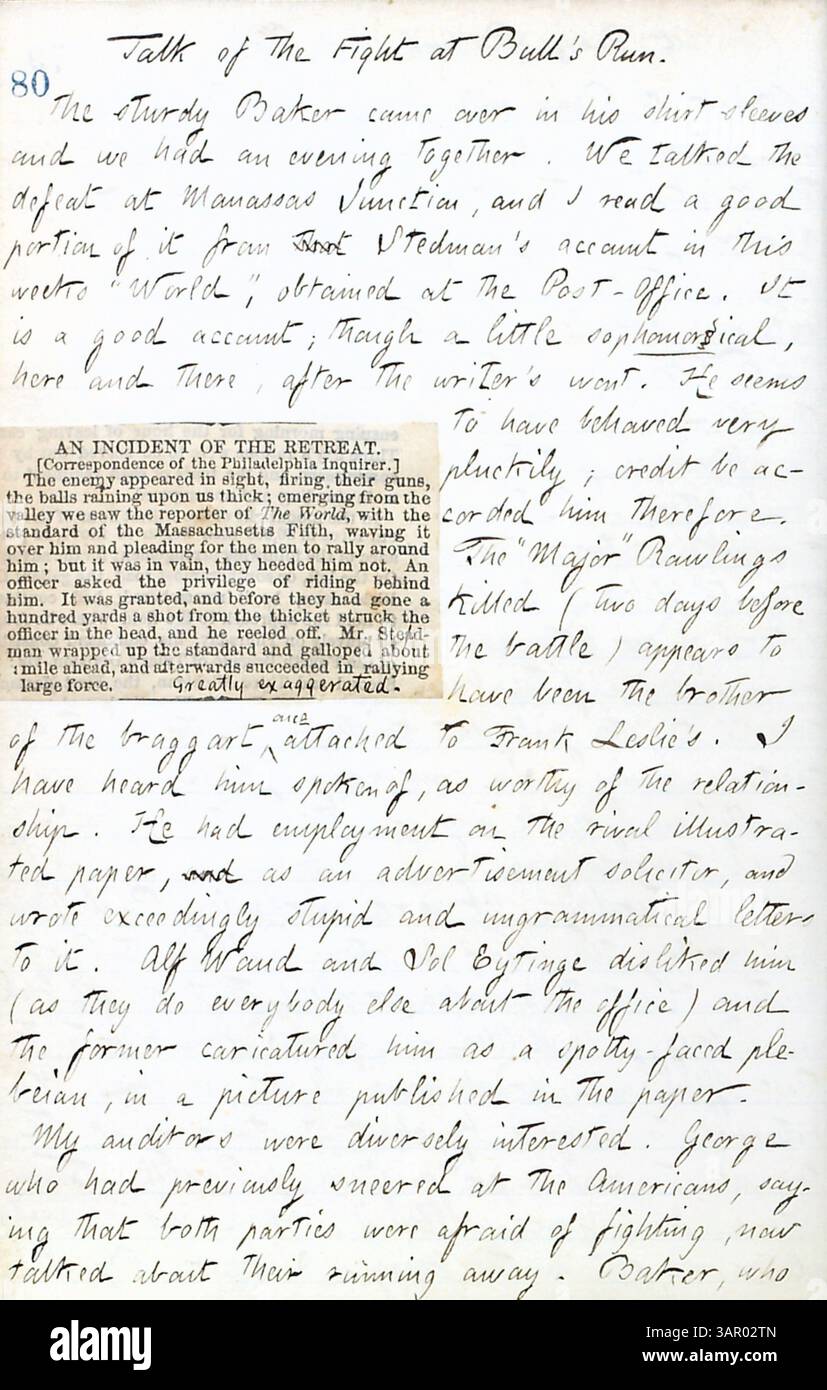 Talk of the Fight at Bull's Run.
80
The sturdy Baker came over in his shirt sleeves
and we had an evening together. We talked the
defeat at Manassas Junction, and I read a good
portion of it from that Stedman's account in this
weeks "World", obtained at the Post-Office. It
is a good account; though a little sophomorical,
here and there, after the writer's wont. He seems
to have behaved very
pluckily; credit be ac-
corded him therefore.
The "Major" Rawlings
killed (two days before
the battle) appears to
have been the brother
AN INCIDENT OF THE RETREAT.
[Correspondence of the Philadelphia Inquirer.]
The enemy appeared in sight, firing their guns,
the balls raining upon us thick; emerging from the
valley we saw the reporter of The World, with the
standard of the Massachusetts Fifth, waving it
over him and pleading for the men to rally around
him; but it was in vain, they heeded him not. An
officer asked the privilege of riding behind
him. It was granted, and before they had gone a
hundred yards a shot from the thicket struck the
officer in the head, and he reeled off. Mr. Sted-
man wrapped up the standard and galloped about
mile ahead, and afterwards succeeded in rallying
large force. Greatly exaggerated.
of the braggart, attached to Frank Leslie's. I
have heard him spoken of, as worthy of the relation-
ship. He had employment on the rival illustra-
ted paper, and as an advertisement solicitor, and
wrote exceedingly stupid and ungrammatical letters
to it. Alf Waud and Sol Eytinge disliked him
(as they do everybody else about the office) and
the former caricatured him as a spotty-faced ple-
beian, in a picture published in the paper.
My auditors were diversely interested. George
who had previously sneered at the Americans, say-
ing that both parties were afraid of fighting, now
talked about their running away. Baker, who
alamy
Image ID: 3AR02TN
www.alamy.com